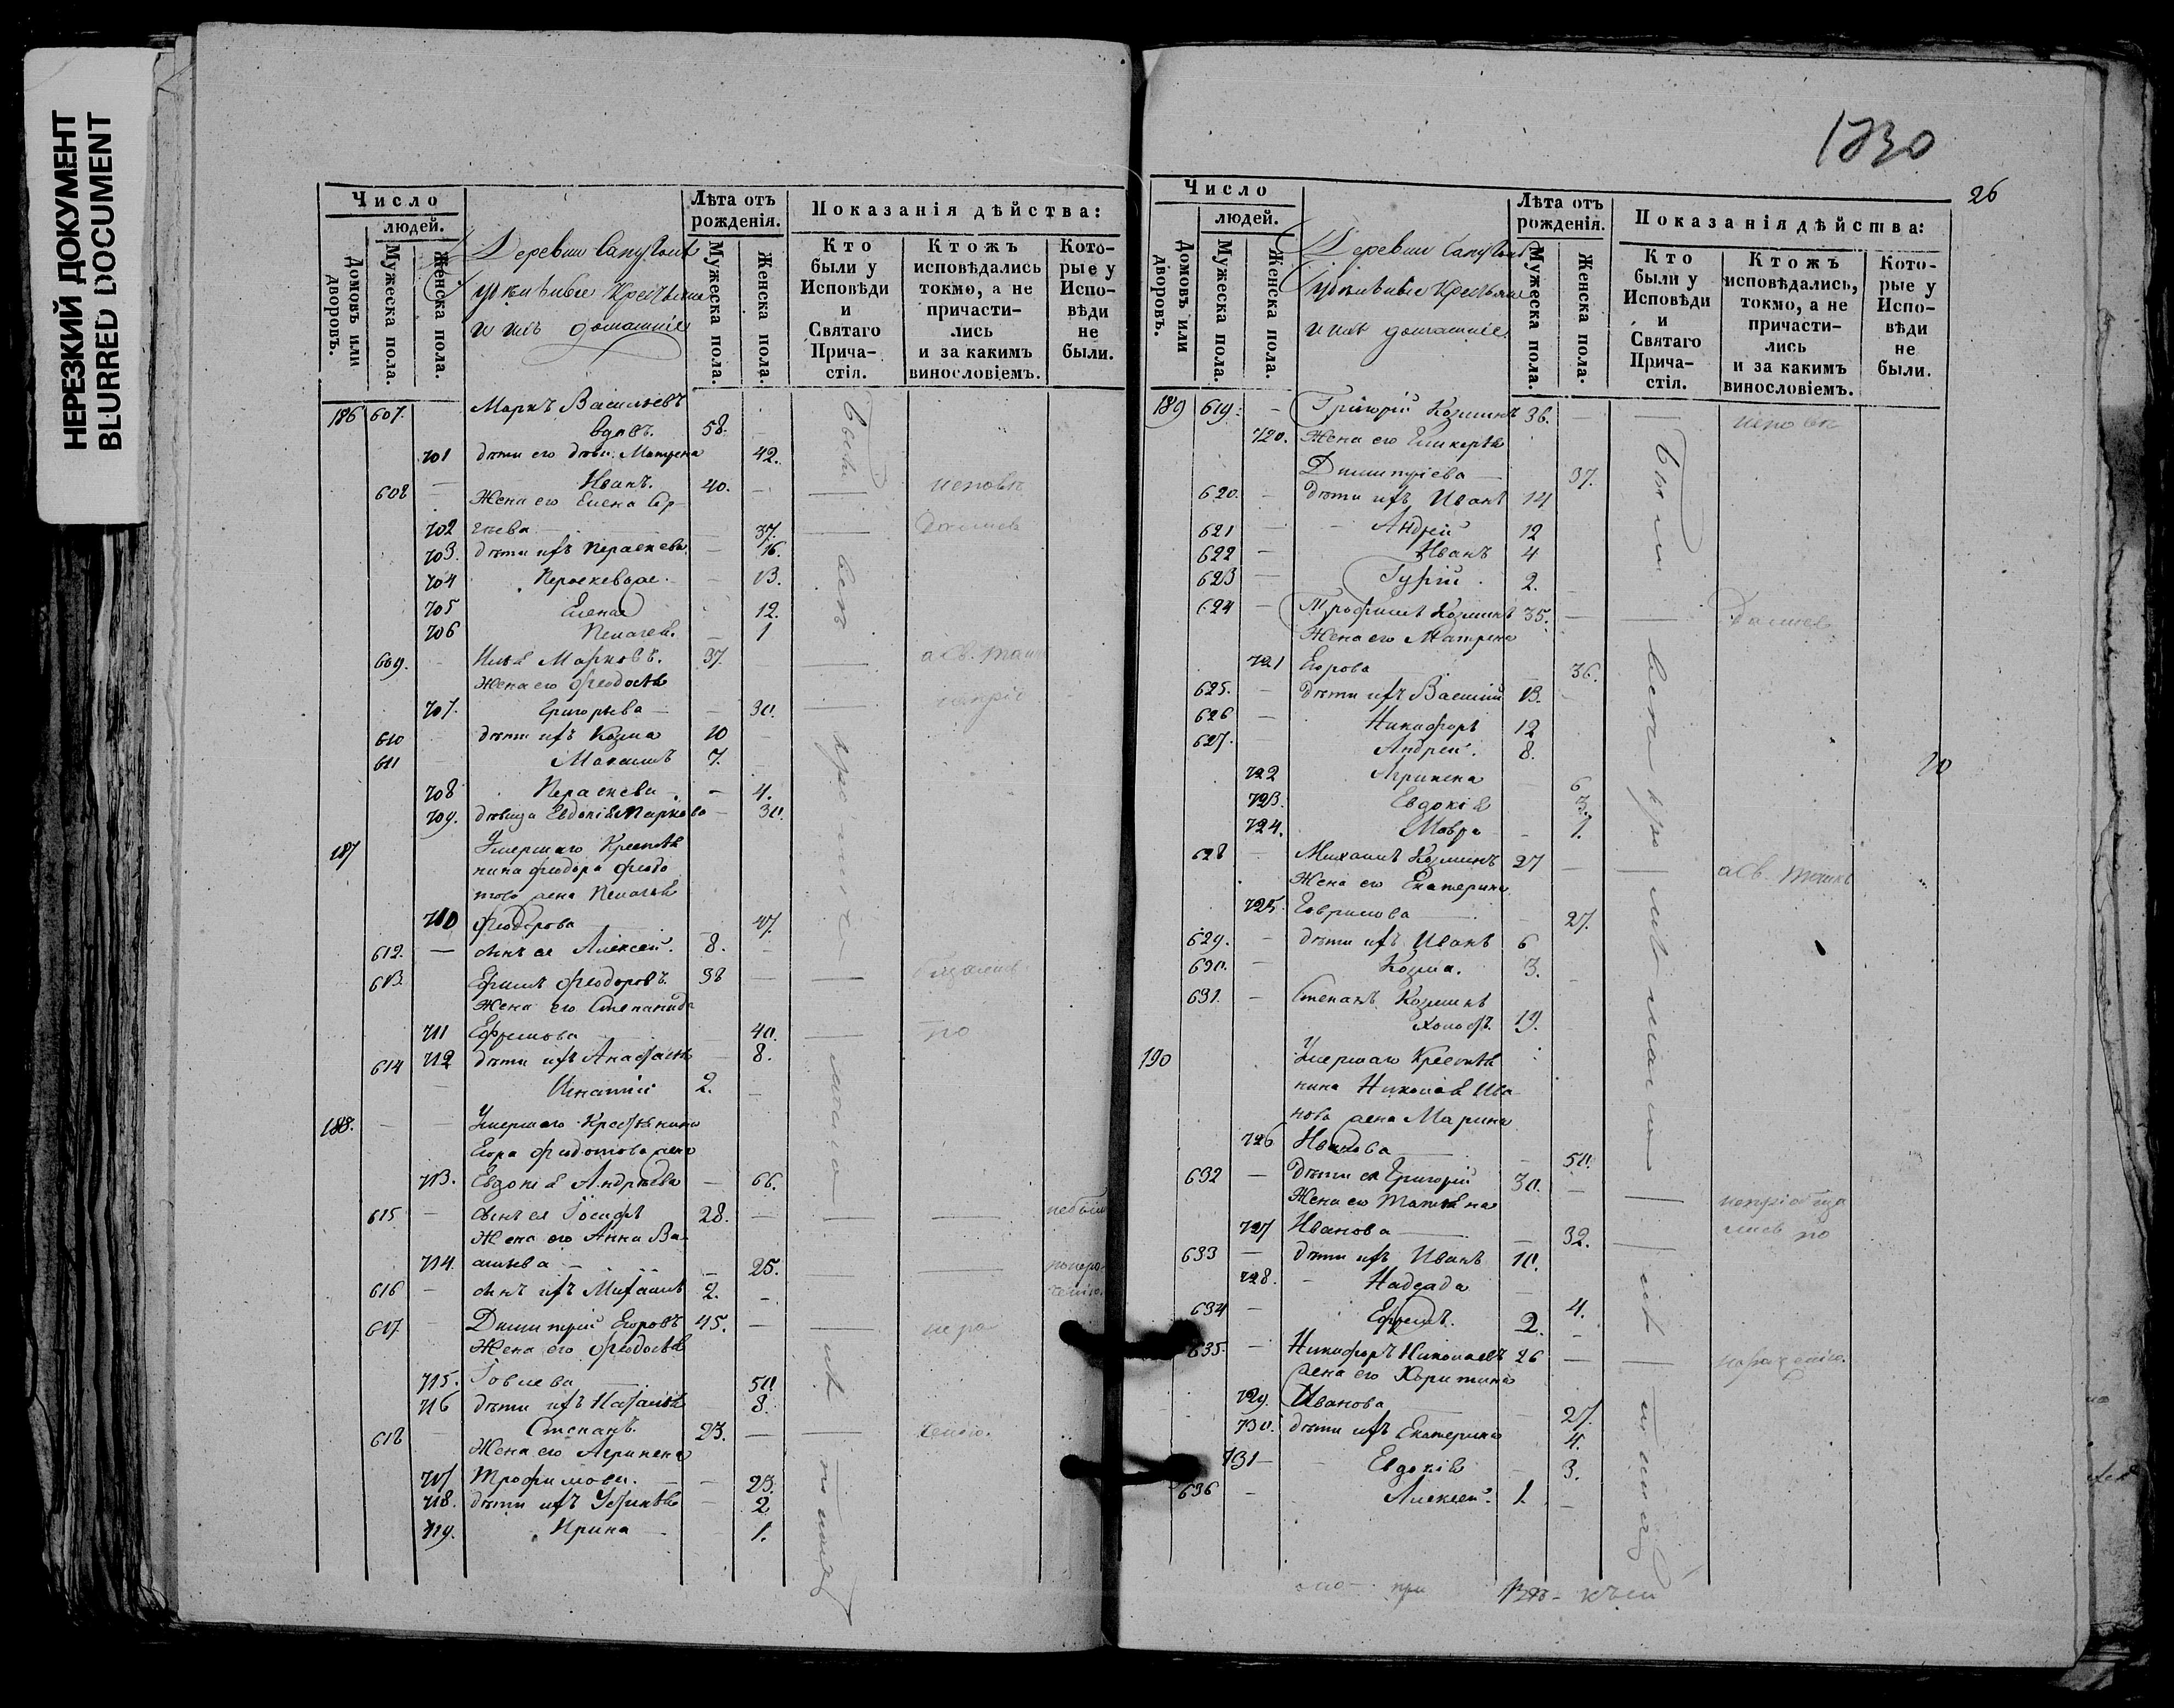 НЕРЕЗКИЙ ДОКУМЕНТ
BLURRED DOCUMENT
Число
людей.
Домовъ или дворовъ.
Мужеска пола.
Женска пола.
Деревни
и ихъ домашніе
Лѣта отъ рожденія.
Мужеска пола.
Женска пола.
Показанія дѣйства:
Кто были у Исповѣди и Святаго Причастія.
Ктожъ исповѣдались токмо, а не причастились и за какимъ винословіемъ.
Которые у Исповѣди не были.
186 607. Маркъ Васильевъ
вдовъ. 58.
701 дѣти его Матрена 42.
608 Иванъ. 40.
Жена его Елена Сер-
702 гѣева 37.
703. дѣти ихъ Параскева 16.
704 Параскева 13.
705 Елена 12.
706 Пелагея. 1
609. Илья Марковъ. 37.
Жена его Феодосья
707. Григорьева 30.
610 дѣти ихъ Козма 10
611 Максимъ 7.
708 Параскева 4.
709. дѣвица Евдокія Маркова 30.
187 Умершаго Крестья
нина Феодора Федо
това жена Пелагея
710 Феодорова 47.
612. сынъ ея Алексей. 8.
613. Ефимъ Феодоровъ. 38
Жена его Степанида
711 Ефремова 40.
712 дѣти ихъ 8.
614 Игнатій 2.
188. Умершаго Крестьянина
Егора Федотова жена
713. Евдокія Андрѣева 66.
615 сынъ ея Іосифъ 28.
Жена его Анна Ва-
714. сильева 25.
616 сынъ ихъ Михаилъ 2.
617. Димитрій Егоровъ 45.
Жена его Феодосья
715. Іовлева 50.
716 дѣти ихъ Наталья 8.
618 Степанъ. 23.
Жена его Агрипена
717 Трофимова. 23.
718. дѣти ихъ Устинья 2
719. Ирина 1.
1730
26
Число
людей.
Домовъ или дворовъ.
Мужеска пола.
Женска пола.
Деревни
и ихъ домашніе
Лѣта отъ рожденія.
Мужеска пола.
Женска пола.
Показанія дѣйства:
Кто были у Исповѣди и Святаго Причастія.
Ктожъ исповѣдались, токмо, а не причастились и за какимъ винословіемъ.
Которые у Исповѣди не были.
189 619. Григорій Козминъ 36.
720. Жена его Гликерья
Димитріева 37.
620. дѣти ихъ Иванъ 14
621 Андрей 12
622 Иванъ 4
623 Гурій 2.
624 Трофимъ Козминъ 35.
Жена его Матрена
721 Егорова 36.
625. дѣти ихъ Василій 13.
626 Никифоръ 12
627. Андрей. 8.
722 Агрипена 6
723. Евдокія 3.
724. Мавра 1.
628 Михаилъ Козминъ 27
Жена его Екатерина
725. Гаврилова 27.
629. дѣти ихъ Иванъ 6
630. Козма. 3.
631. Степанъ Козминъ
холостъ. 19.
190 Умершаго Крестья
нина Николая Ива
нова жена Марина
726 Иванова 50.
632 дѣти ея Григорій 30.
Жена его Татьяна
727 Иванова 32.
633 дѣти ихъ Иванъ 10.
728. Надежда 4.
634 Ефремъ. 2.
635. Никифоръ Николаевъ 26
жена его Харитина
729. Иванова 27.
730. дѣти ихъ Екатерина 4.
731 Евдокія 3.
636 Алексей. 1.